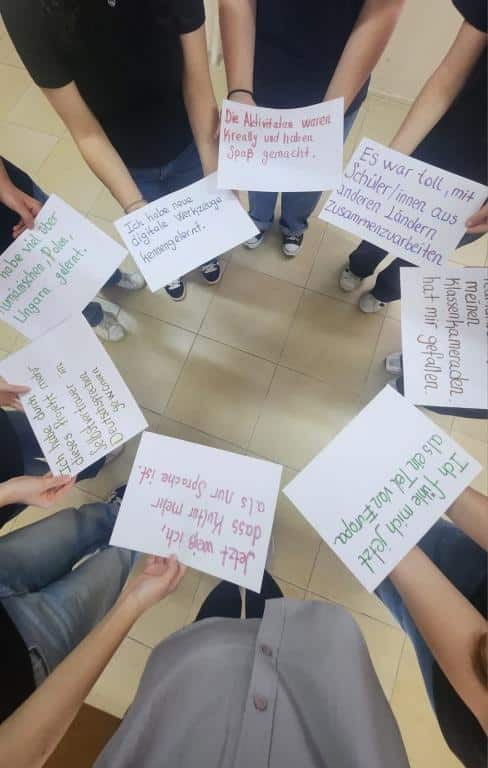 Die Aktivitaten waren
Kreativ und haben
Spaß gemacht.
Es war toll, mit
Schüler/innen aus
anderen Ländern
zusammenzuarbeiten
meinen
Klassenkameraden.
hat mir gefallen.
Ich fühle mich jetzt
als ein Teil von Europa.
Jetzt weiß ich,
dass Kultur mehr
als nur Sprache ist.
Ich habe durch
dieses Projekt mehr
Selbstvertrauen im
Deutschsprechen
gewonnen
habe viel über
Polen,
Ungarn gelernt.
Ich habe neue
digitale Werkzeuge
kennengelernt.